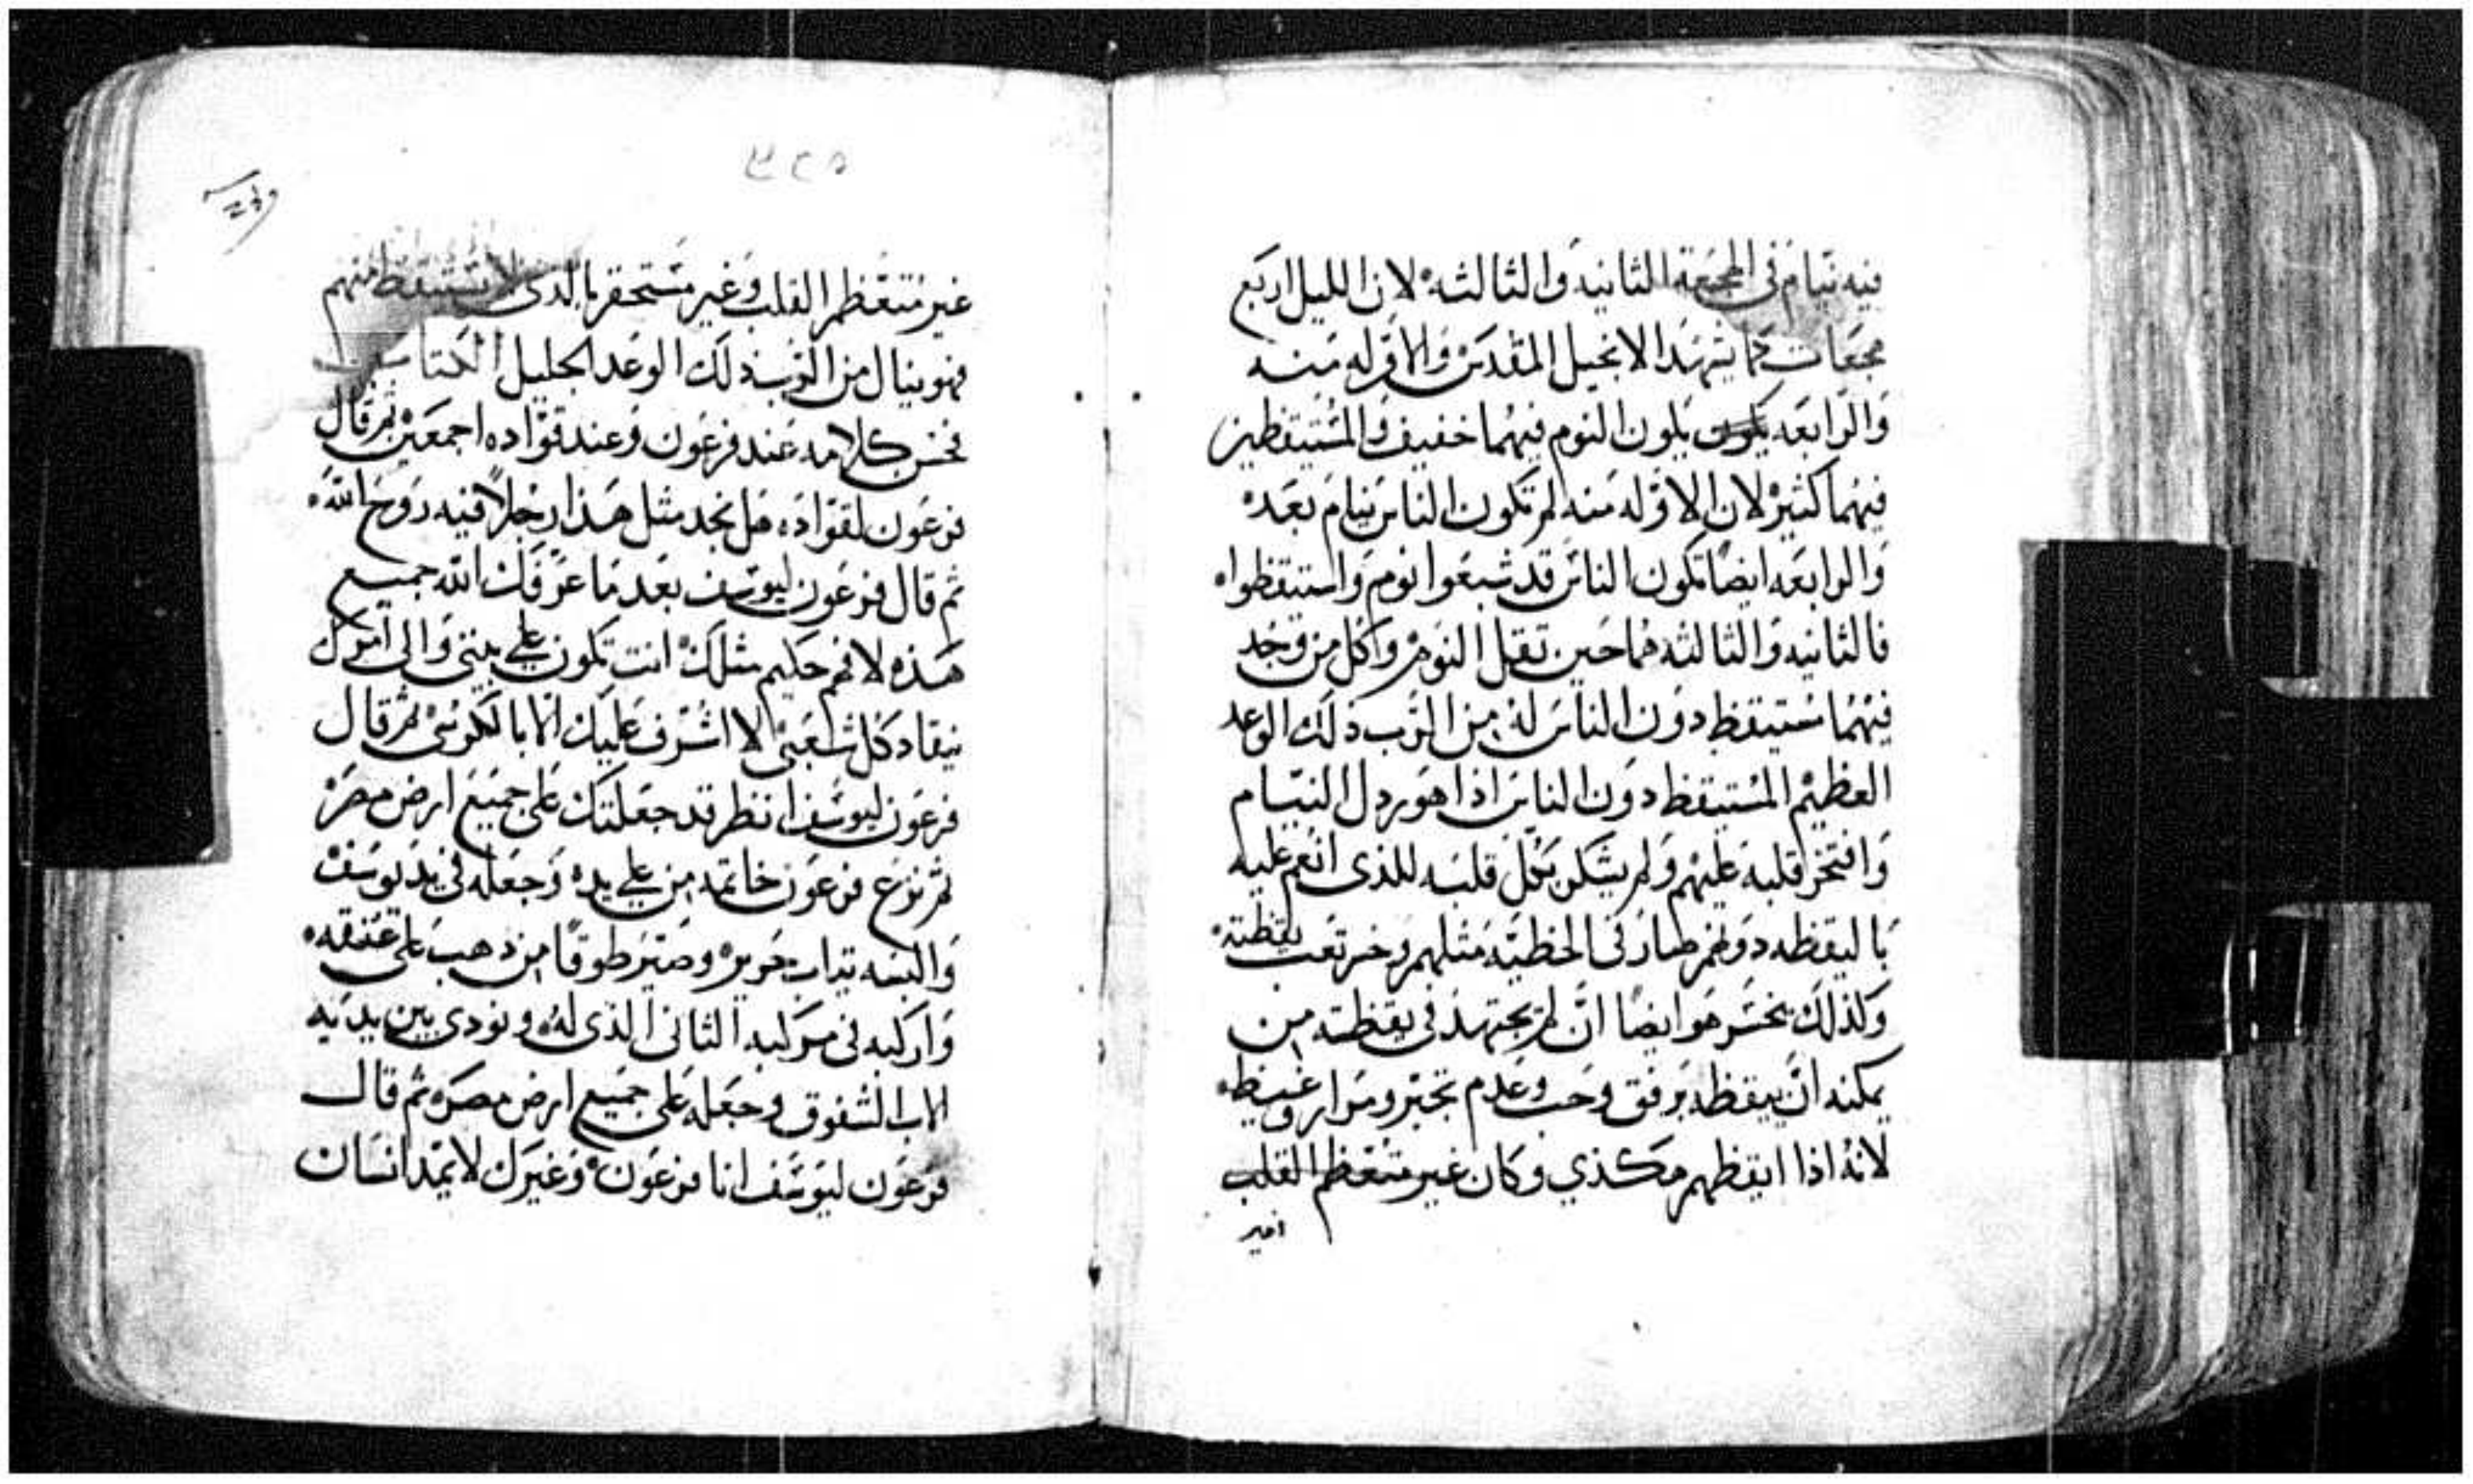 فيه نيام في الهجعة الثانيه والثالثه لان الليل اربع
هجعات كما يشهد الانجيل المقدس والاوله منه
والرابعه يكون النوم فيهما خفيف والمستيقظين
فيهما كثير لان الاوله منه لم تكون الناس نيام بعد
والرابعه ايضا تكون الناس قد شبعوا نوم واستيقظوا
فالثانيه والثالثه هما حين تقل النوم وكل من وجد
فيهما مستيقظ دون الناس له من الرب ذلك الوعد
العظيم المستيقظ دون الناس اذا هو رذل النيام
وافتخر قلبه عليهم ولم يشكر بكل قلبه للذي انعم عليه
باليقظه دونهم صار في الخطيه مثلهم وخسر تعب يقظته
وكذلك يخسر هو ايضا ان لم يجتهد في يقظته من
يمكنه ان ييقظه برفق وحب وعدم تجبر ومرار وغيظ
لانه اذا ايقظهم هكذي وكان غير متعظم القلب
غير
٣٢٥
غير متعظم القلب وغير مستحقر بالذي لا يستيقظ منهم
فهو ينال من الرب ذلك الوعد الجليل
فحسن كلامه عند فرعون وعند قواده اجمعين ثم قال
فرعون لقواده هل نجد مثل هذا رجلاً فيه روح الله
ثم قال فرعون ليوسف بعد ما عرفك الله جميع
هذه لا فهم حكيم مثلك انت تكون علي بيتي والى امرك
ينقاد كل شعبي لا اشرف عليك الا بالكرسي ثم قال
فرعون ليوسف انظر قد جعلتك على جميع ارض مصر
ثم نزع فرعون خاتمه من علي يده وجعله في يد يوسف
والبسه تياب حرير وصير طوقًا من دهب على عنقه
واركبه في مركبه الثاني الذي له ونودي بين يديه
الاب الشفوق وجعله على جميع ارض مصر ثم قال
فرعون ليوسف انا فرعون وغيرك لا يمد انسان